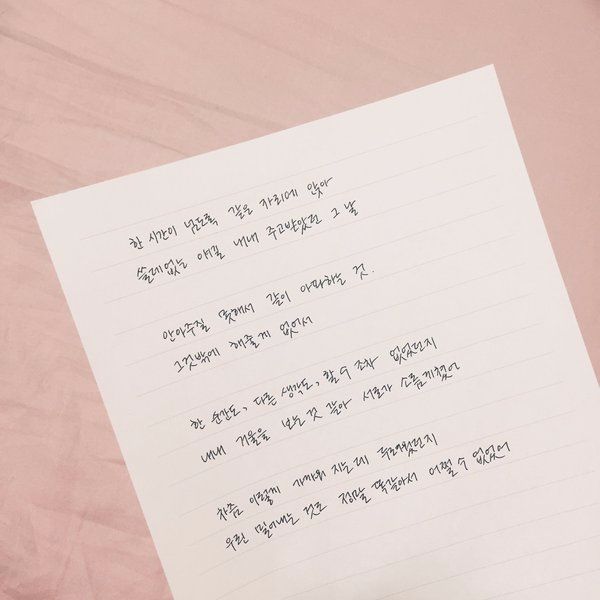 한 시간이 넘도록 같은 자리에 앉아
쓸데없는 얘길 내내 주고받았던 그 날
안아주질 못해서 같이 아파하는 것.
그것밖에 해줄게 없어서
한 순간도, 다른 생각도, 할 수 조차 없었던지
내내 거울을 보는것 같아 서로가 소름끼쳤어
차츰 이렇게 가까워 지는데 두려웠던지
우린 밀어내는 것도 정말 똑같아서 어쩔 수 없었어